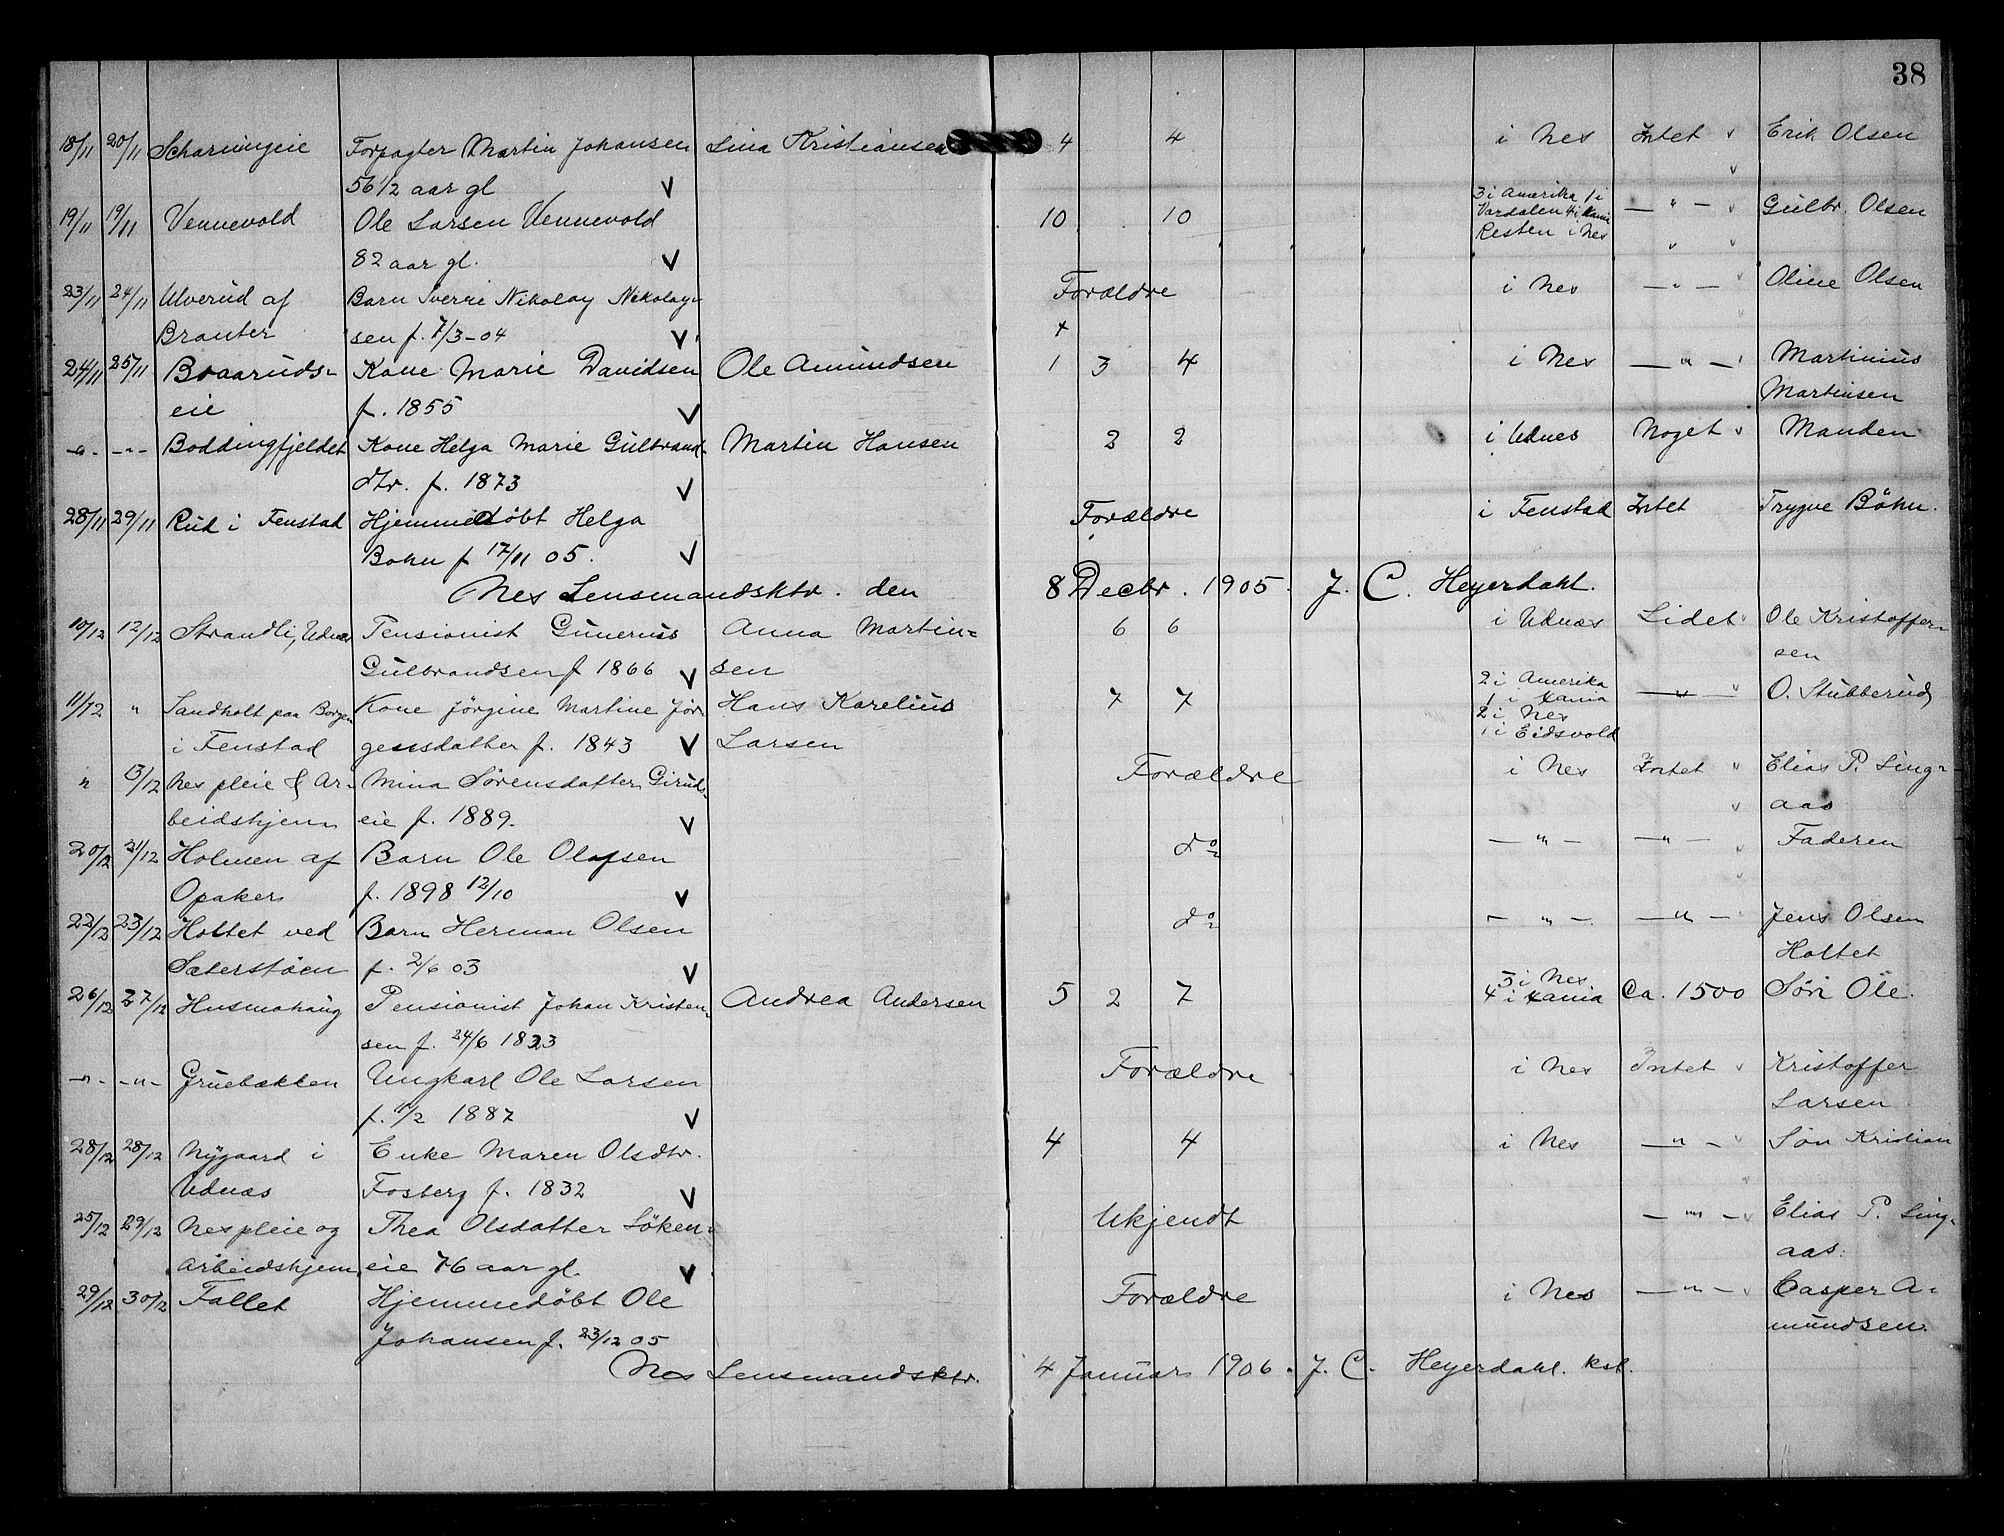 38
18/11 20/11 Scharningeie Forpagter Martin Johansen Lina Kristiansen 4 4 i Nes Intet Erik Olsen
56 1/2 aar gl V
19/11 19/11 Vennevold Ole Larsen Vennevold 10 10 3 i Amerika 1 i Vardalen 4 i Xania Resten i Nes — " — Gulbr. Olsen
82 aar gl. V
23/11 24/11 Ulverud af Barn Sverre Nikolay Nikolay- Forældre i Nes — " — Oline Olsen
Branter sen f. 7/3-04 V +
24/11 25/11 Braaruds- Kone Marie Davidsen Ole Amundsen 1 3 4 i Nes — " — Martinius
eie f. 1855 V Martinsen
-"- -"- Boddingfjeldet Kone Helga Marie Gulbrand- Martin Hansen 2 2 i Udnes Noget Manden
dtr. f. 1873 V
28/11 29/11 Rud i Fenstad Hjemmedøbt Helga Forældre i Fenstad Intet Trygve Böhn.
Bohn f 17/11 05. V
Nes Lensmandsktr. den 8 Decbr. 1905. J. C. Heyerdahl.
10/12 12/12 Strandli, Udnæs Pensionist Gunerius Anna Martin= 6 6 i Udnæs Lidet Ole Kristoffer=
Gulbrandsen f 1866 V sen sen
11/12 " Sandholt paa Borgen Kone Jörgine Martine Jör- Hans Karelius 7 7 2 i Amerika 1 i Xania 2 i Nes 1 i Eidsvold — " — O. Stubberud
i Fenstad gensdatter f. 1843 V Larsen
" 13/12 Nes pleie & Ar- Mina Sörensdatter Giruds- Forældre i Nes Intet Elias P. Ling-
beidshjem eie f. 1889. V aas
20/12 21/12 Holmen af Barn Ole Olafsen do — " — — " — Faderen
Opaker f. 1898 12/10 V
22/12 23/12 Holtet ved Barn Herman Olsen do — " — — " — Jens Olsen
Sæterstöen f. 2/6 03 V Holtet
26/12 27/12 Husmohaug Pensionist Johan Kristen- Andrea Andersen 5 2 7 3 i Nes 4 i Xania Ca. 1500 Søn Ole.
sen f. 24/6 1823
-"- -"- Gruebækken Ungkarl Ole Larsen Forældre i Nes Intet Kristoffer
f. 11/2 1887 V Larsen
28/12 28/12 Nygaard i Enke Maren Olsdtr. 4 4 i Nes — " — Søn Kristian
Udnæs Fosberg f. 1832 V
25/12 29/12 Nes pleie og Thea Olsdatter Löken- Ukjendt — " — Elias P. Ling-
Arbeidshjem eie 76 aar gl. V aas.
29/12 30/12 Fallet Hjemmedöbt Ole Forældre i Nes — " — Casper A-
Johansen f. 23/12 05 mundsen.
Nes Lensmandsktr. 4 Januar 1906. J. C. Heyerdahl. kst.